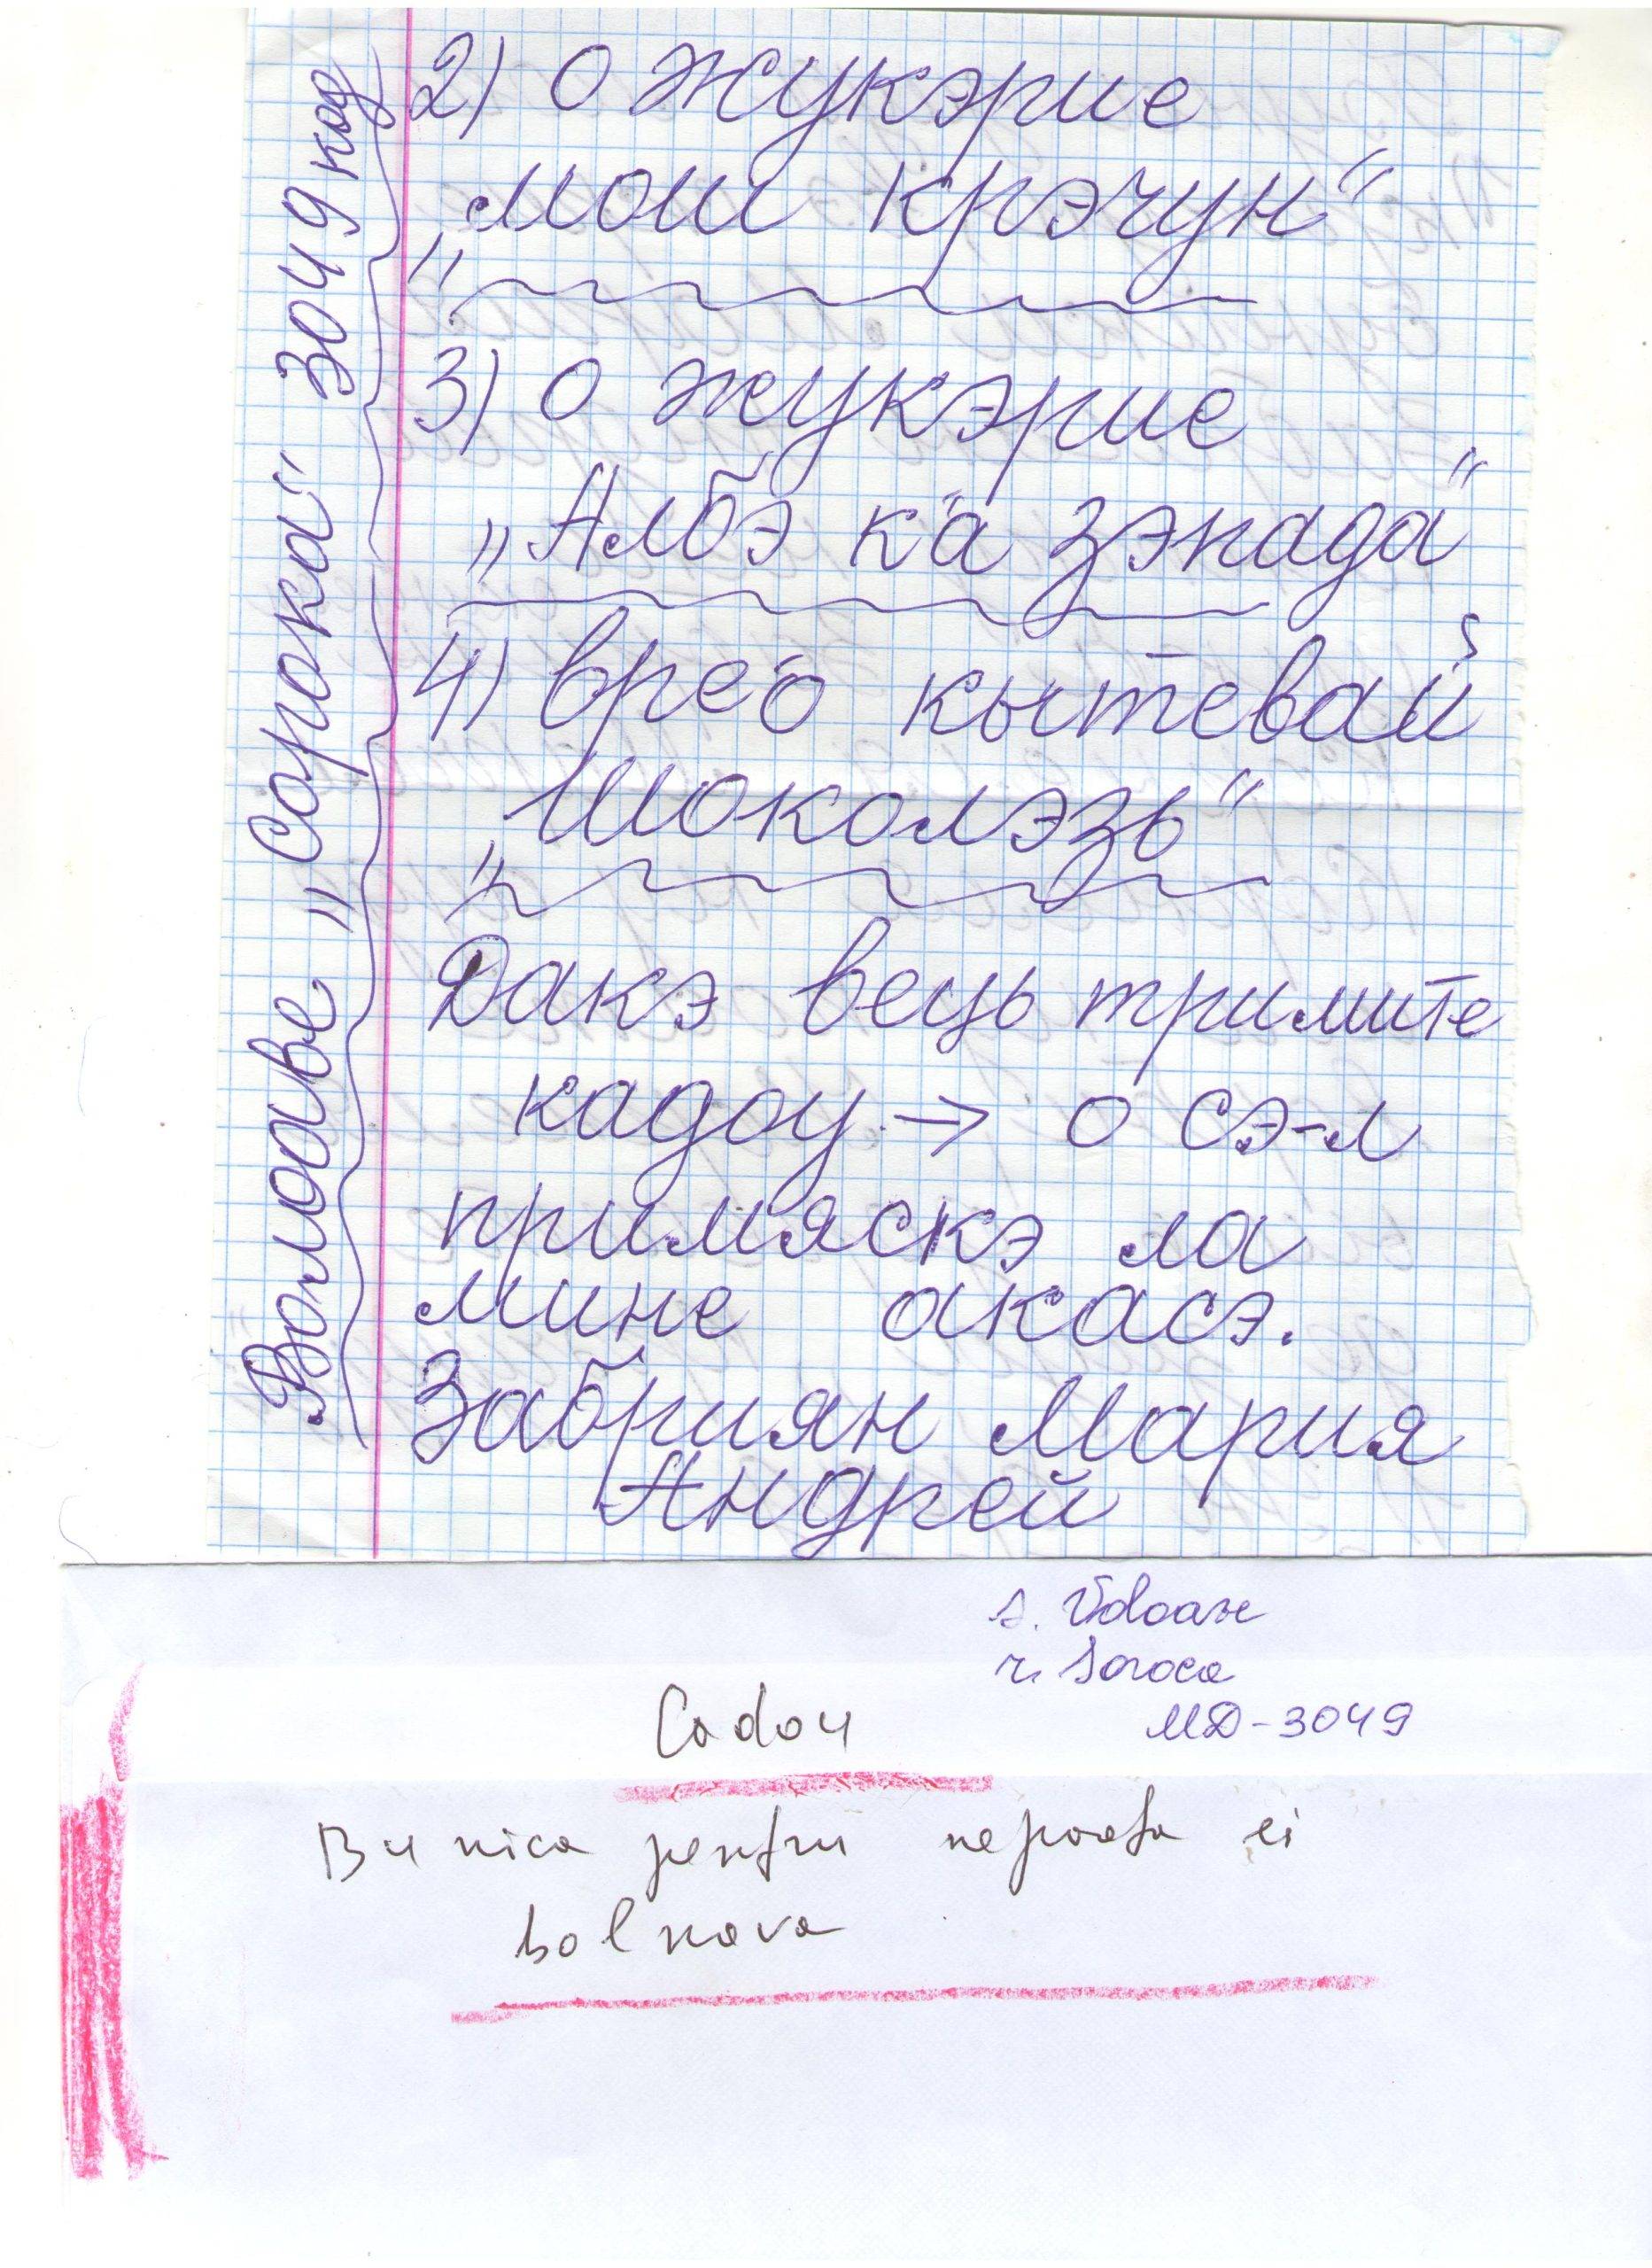 2) о жукэрие
„мош крэчун“
3) о жукэрие
„Албэ ка зэпада“
4) врео кытевай
„Шоколэзь“
Дакэ вець тримите
кадоу → о сэ-л
примяскэ ла
мине акасэ.
Забриян Мария
Андрей
Волоаве „Сорока“ 3049 код
s. Voloave
r. Soroca
MD-3049
Cadou
Bunica pentru nepoata ei
bolnava